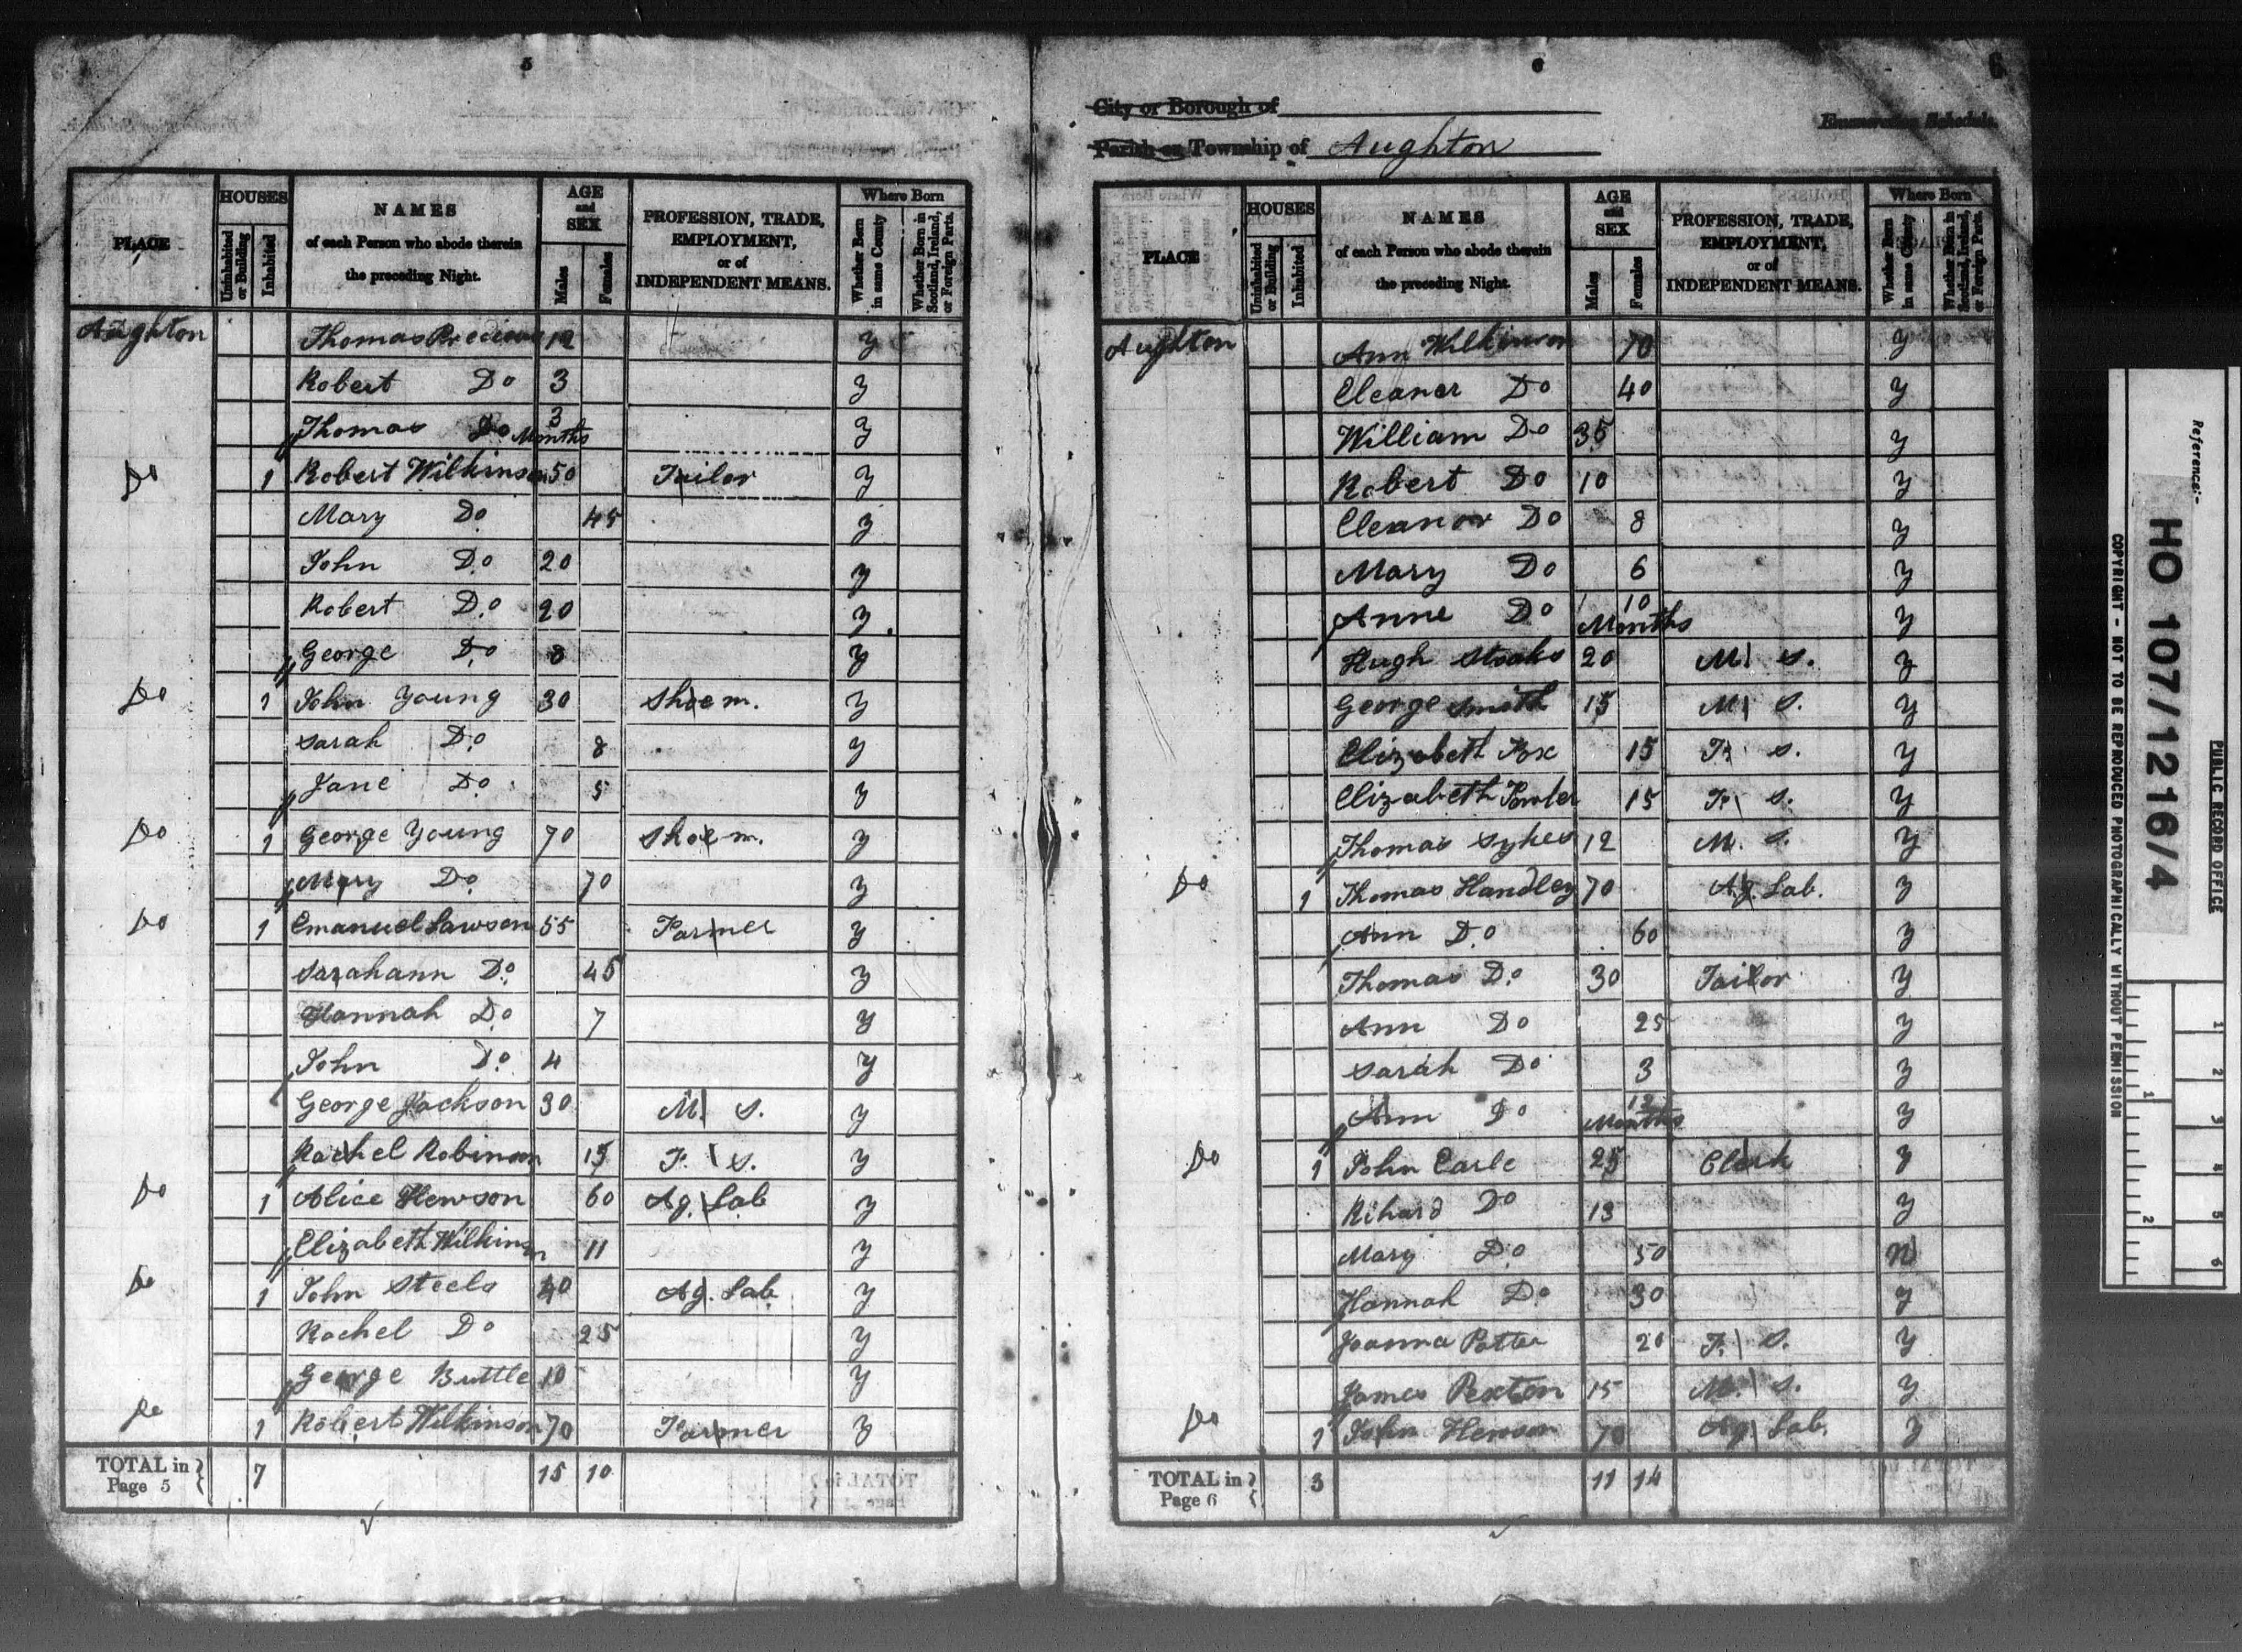 5
PLACE
HOUSES
Uninhabited or Building
Inhabited
NAMES
of each Person who abode therein
the preceding Night.
AGE
and
SEX
Males
Females
PROFESSION, TRADE,
EMPLOYMENT,
or of
INDEPENDENT MEANS.
Where Born
Whether Born in same County
Whether Born in Scotland, Ireland, or Foreign Parts.
Aughton Thomas Precious 12 y
Robert Do 3 y
Thomas Do 3 Months y
Do 1 Robert Wilkinson 50 Tailor y
Mary Do 45 y
John Do 20 y
Robert Do 20 y
George Do 8 y
Do 1 John Young 30 Shoe m. y
Sarah Do 8 y
Jane Do 5 y
Do 1 George Young 70 Shoe m. y
Mary Do 70 y
Do 1 Emanuel Lawson 55 Farmer y
Sarahann Do 45 y
Hannah Do 7 y
John Do 4 y
George Jackson 30 M. S. y
Rachel Robinson 15 F. S. y
Do 1 Alice Hewson 60 Ag. Lab y
Elizabeth Wilkinson 11 y
Do 1 John Steels 40 Ag. Lab y
Rachel Do 25 y
George Buttle 10 y
Do 1 Robert Wilkinson 70 Farmer y
TOTAL in Page 5 7 15 10
6
6
City or Borough of
Parish or Township of Aughton
Enumeration Schedule.
PLACE
HOUSES
Uninhabited or Building
Inhabited
NAMES
of each Person who abode therein
the preceding Night.
AGE
and
SEX
Males
Females
PROFESSION, TRADE,
EMPLOYMENT,
or of
INDEPENDENT MEANS.
Where Born
Whether Born in same County
Whether Born in Scotland, Ireland, or Foreign Parts.
Aughton Ann Wilkinson 70 y
Eleanor Do 40 y
William Do 35 y
Robert Do 10 y
Eleanor Do 8 y
Mary Do 6 y
Anne Do 10 Months y
Hugh 20 M S. y
George Smith 15 M S. y
Elizabeth Fox 15 F. S. y
Elizabeth Fowler 15 F. S. y
Thomas Sykes 12 M. S. y
Do 1 Thomas Handley 70 Ag. Lab. y
Ann Do 60 y
Thomas Do 30 Tailor y
Ann Do 25 y
Sarah Do 3 y
Ann Do 12 Months y
Do 1 John Earle 25 Clerk y
Rihard Do 15 y
Mary Do 50 N
Hannah Do 30 y
Joanna 20 F. S. y
James Pexton 15 M. S. y
Do 1 John Hewson 70 Ag. Lab. y
TOTAL in Page 6 3 11 14
Reference:-
HO 107/1216/4
PUBLIC RECORD OFFICE
COPYRIGHT - NOT TO BE REPRODUCED PHOTOGRAPHICALLY WITHOUT PERMISSION
1 2 3 4 5 6
1 2